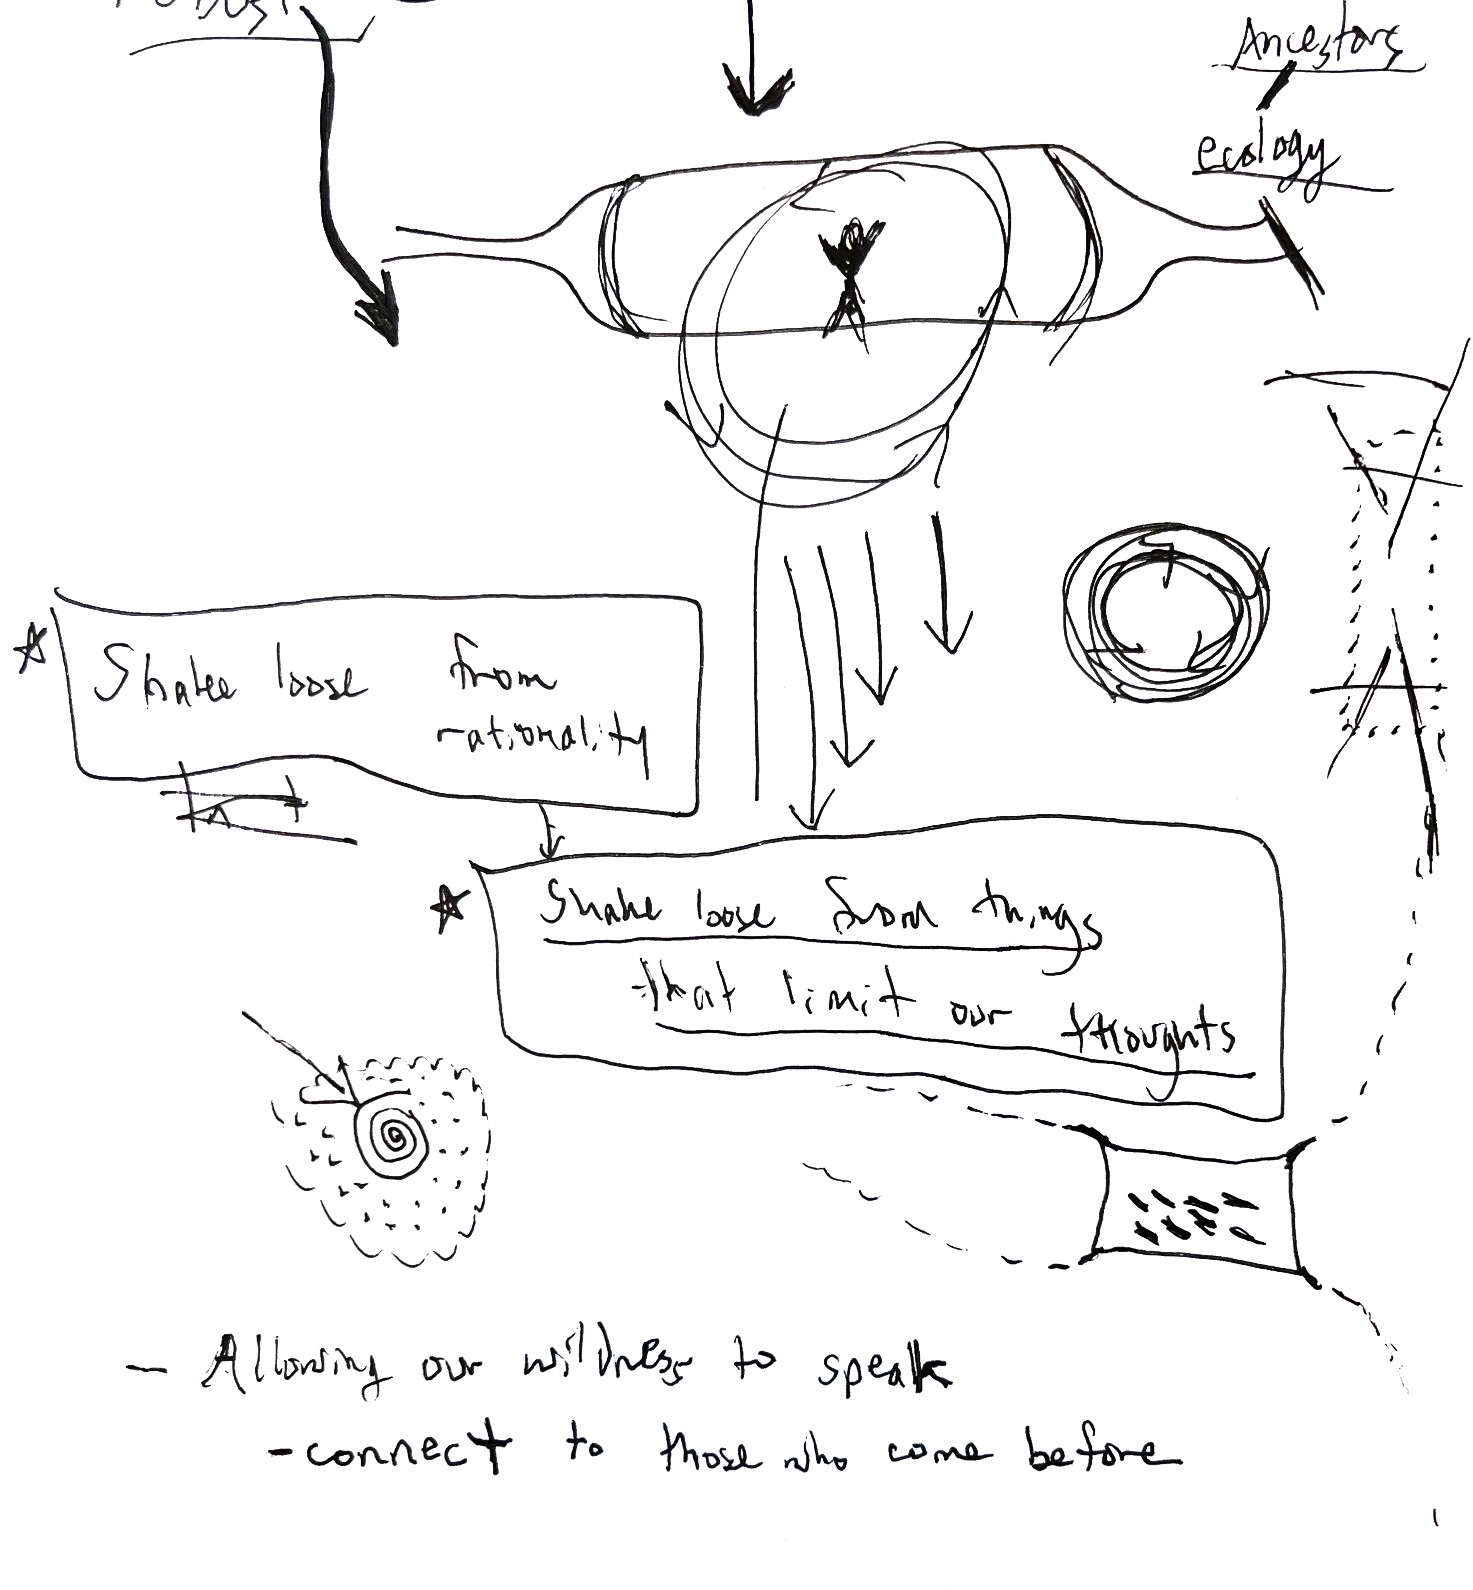 Ancestors
ecology
Shake loose from
rationality
Shake loose from things
that limit our thoughts
- Allowing our wildness to speak
- connect to those who come before